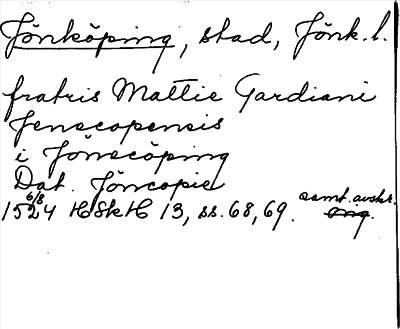 Jönköping, stad, Jönk. l.
fratris Mattie Gardiani
Jenecopensis
i Jönecöping
Dat. Jöncopie
1524 6/8 HSkH 13, ss. 68, 69. samt. avskr.